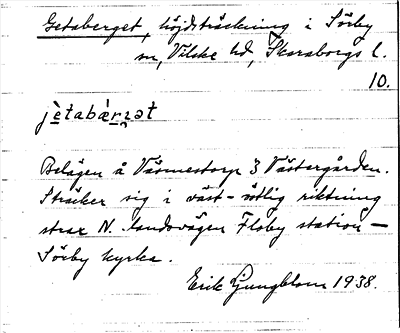 Getaberget, höjdsträckning i Sörby
sn, Vilske hd, Skaraborgs l.
10.
jètabær̀r̥ət
Belägen å Väsmestorp 3 Västergården.
Sträcker sig i väst-östlig riktning
strax N. landsvägen Floby station –
Sörby kyrka.
Erik Ljungblom 1938.